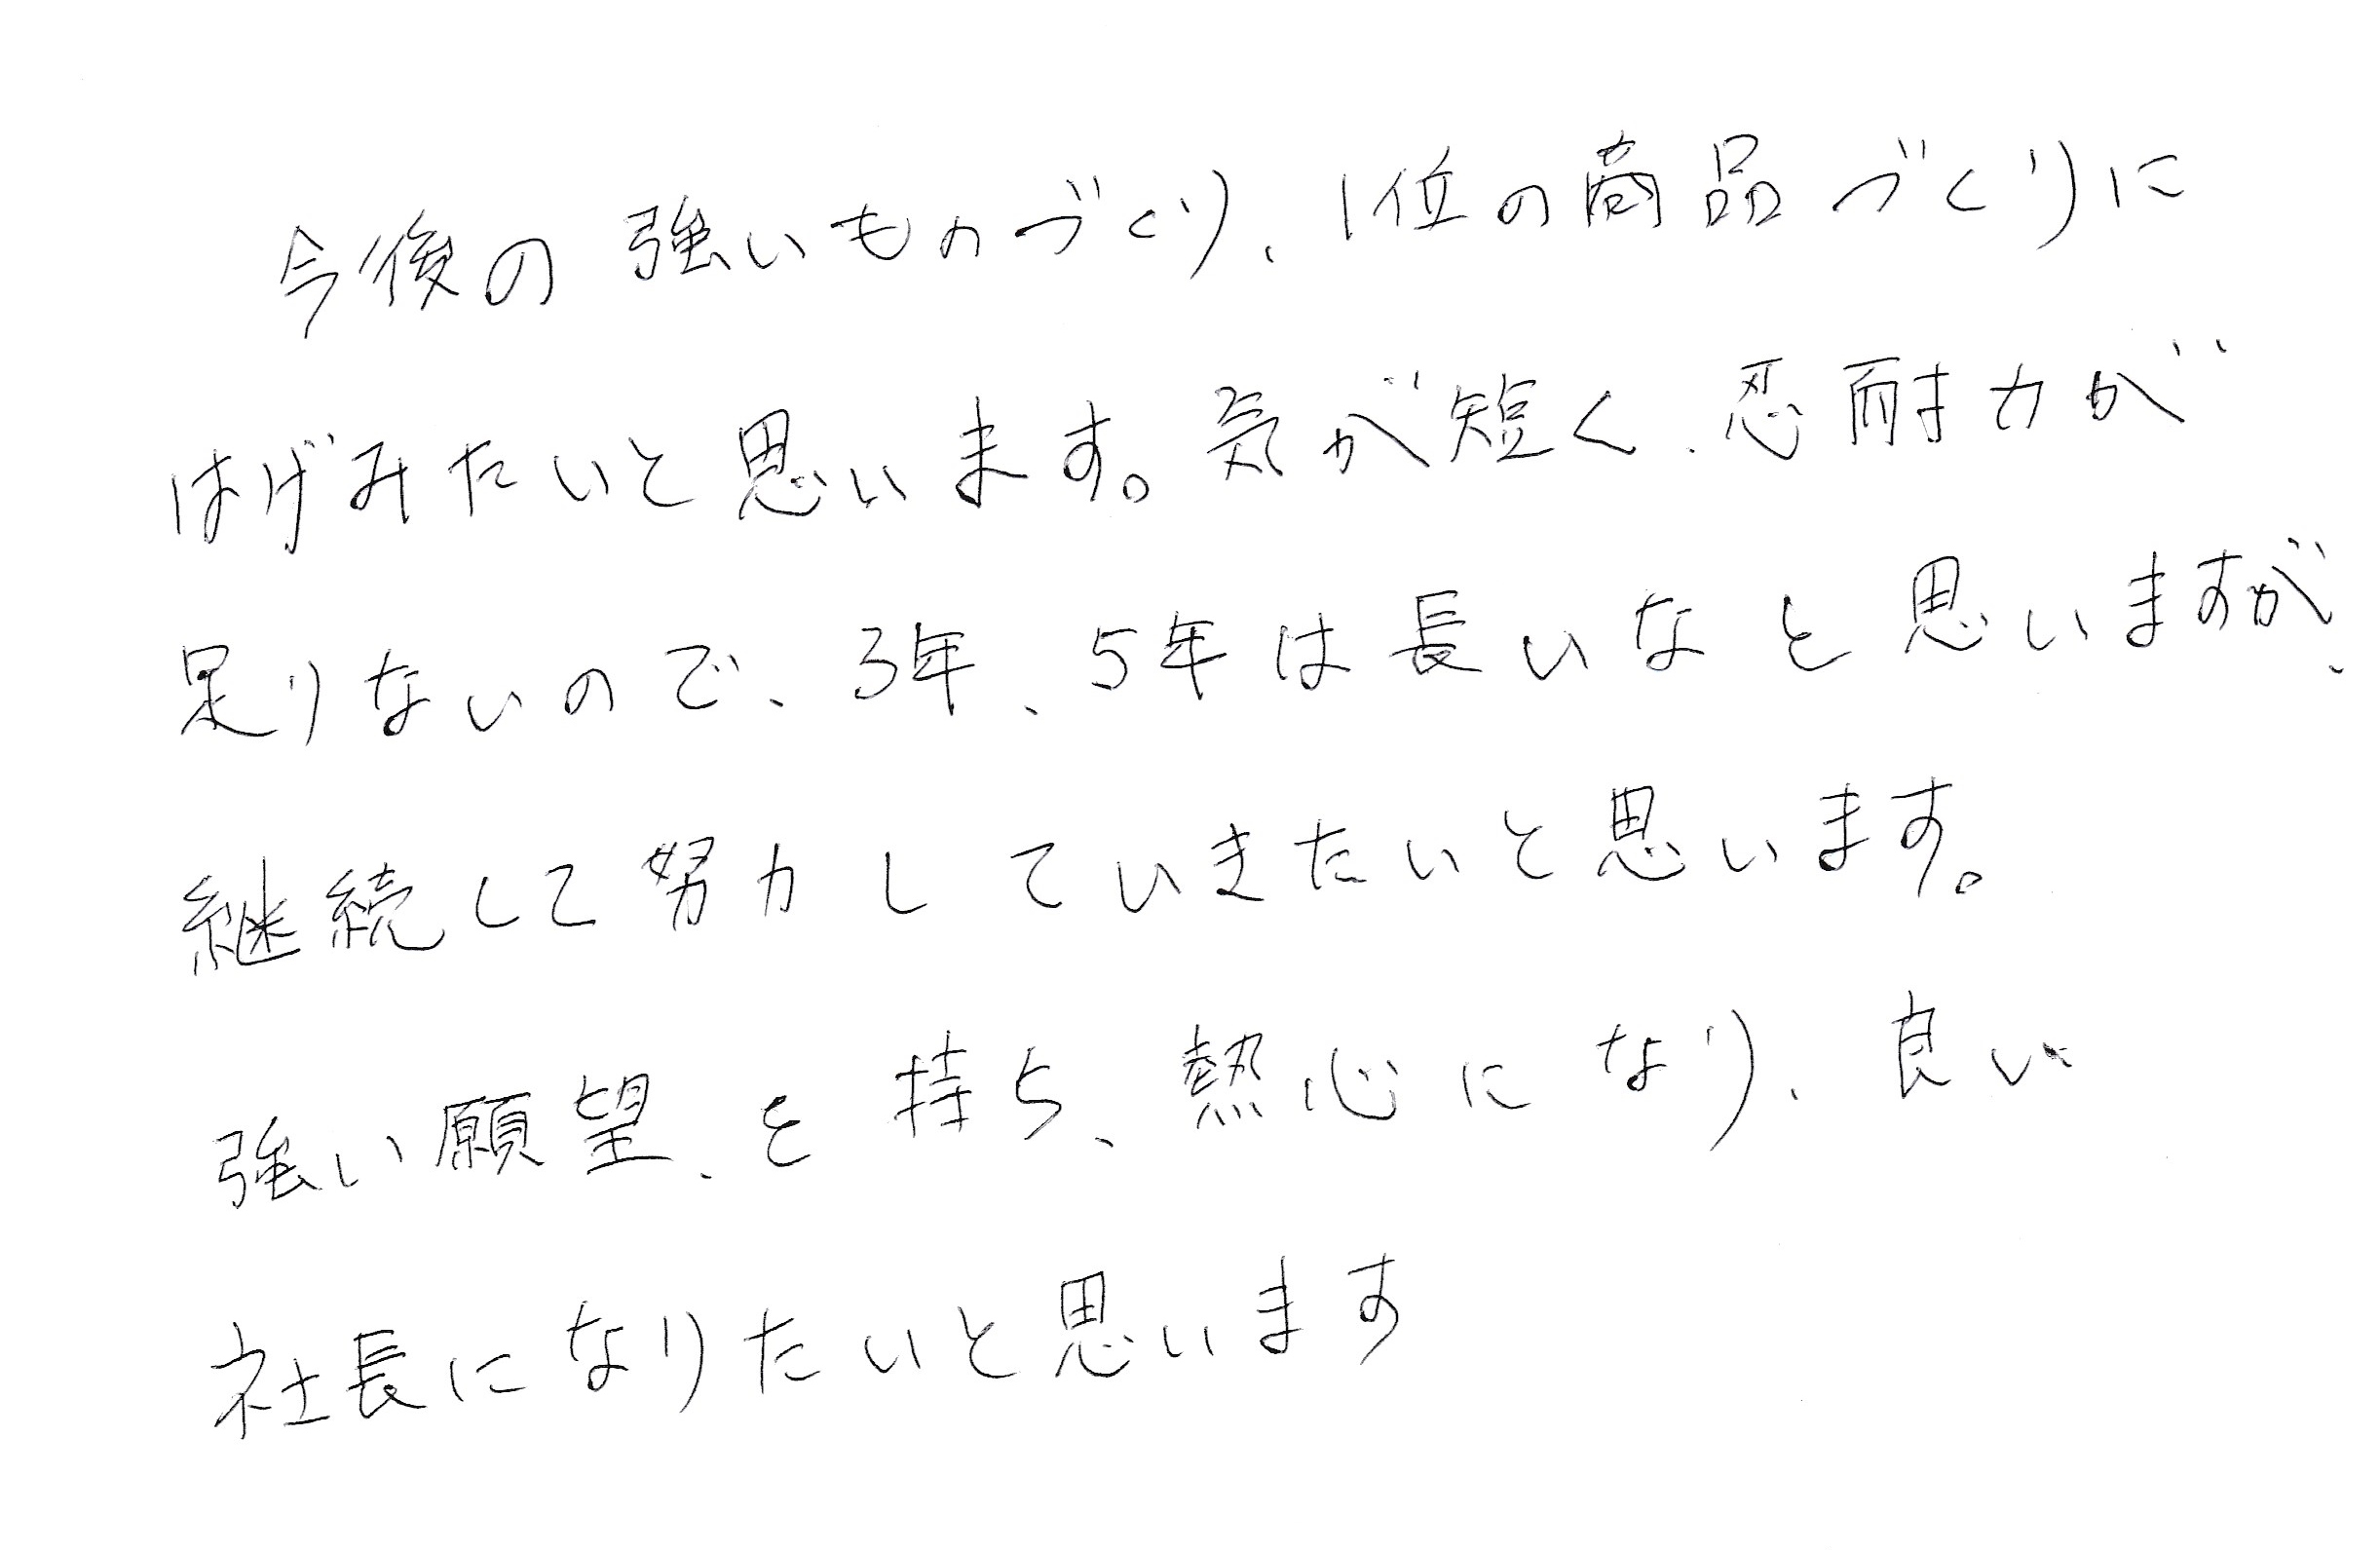 今後の強いものづくり、1位の商品づくりに
はげみたいと思います。気が短く、忍耐力が
足りないので、3年、5年は長いなと思いますが、
継続して努力していきたいと思います。
強い願望、を持ち、熱心になり、良い
社長になりたいと思います